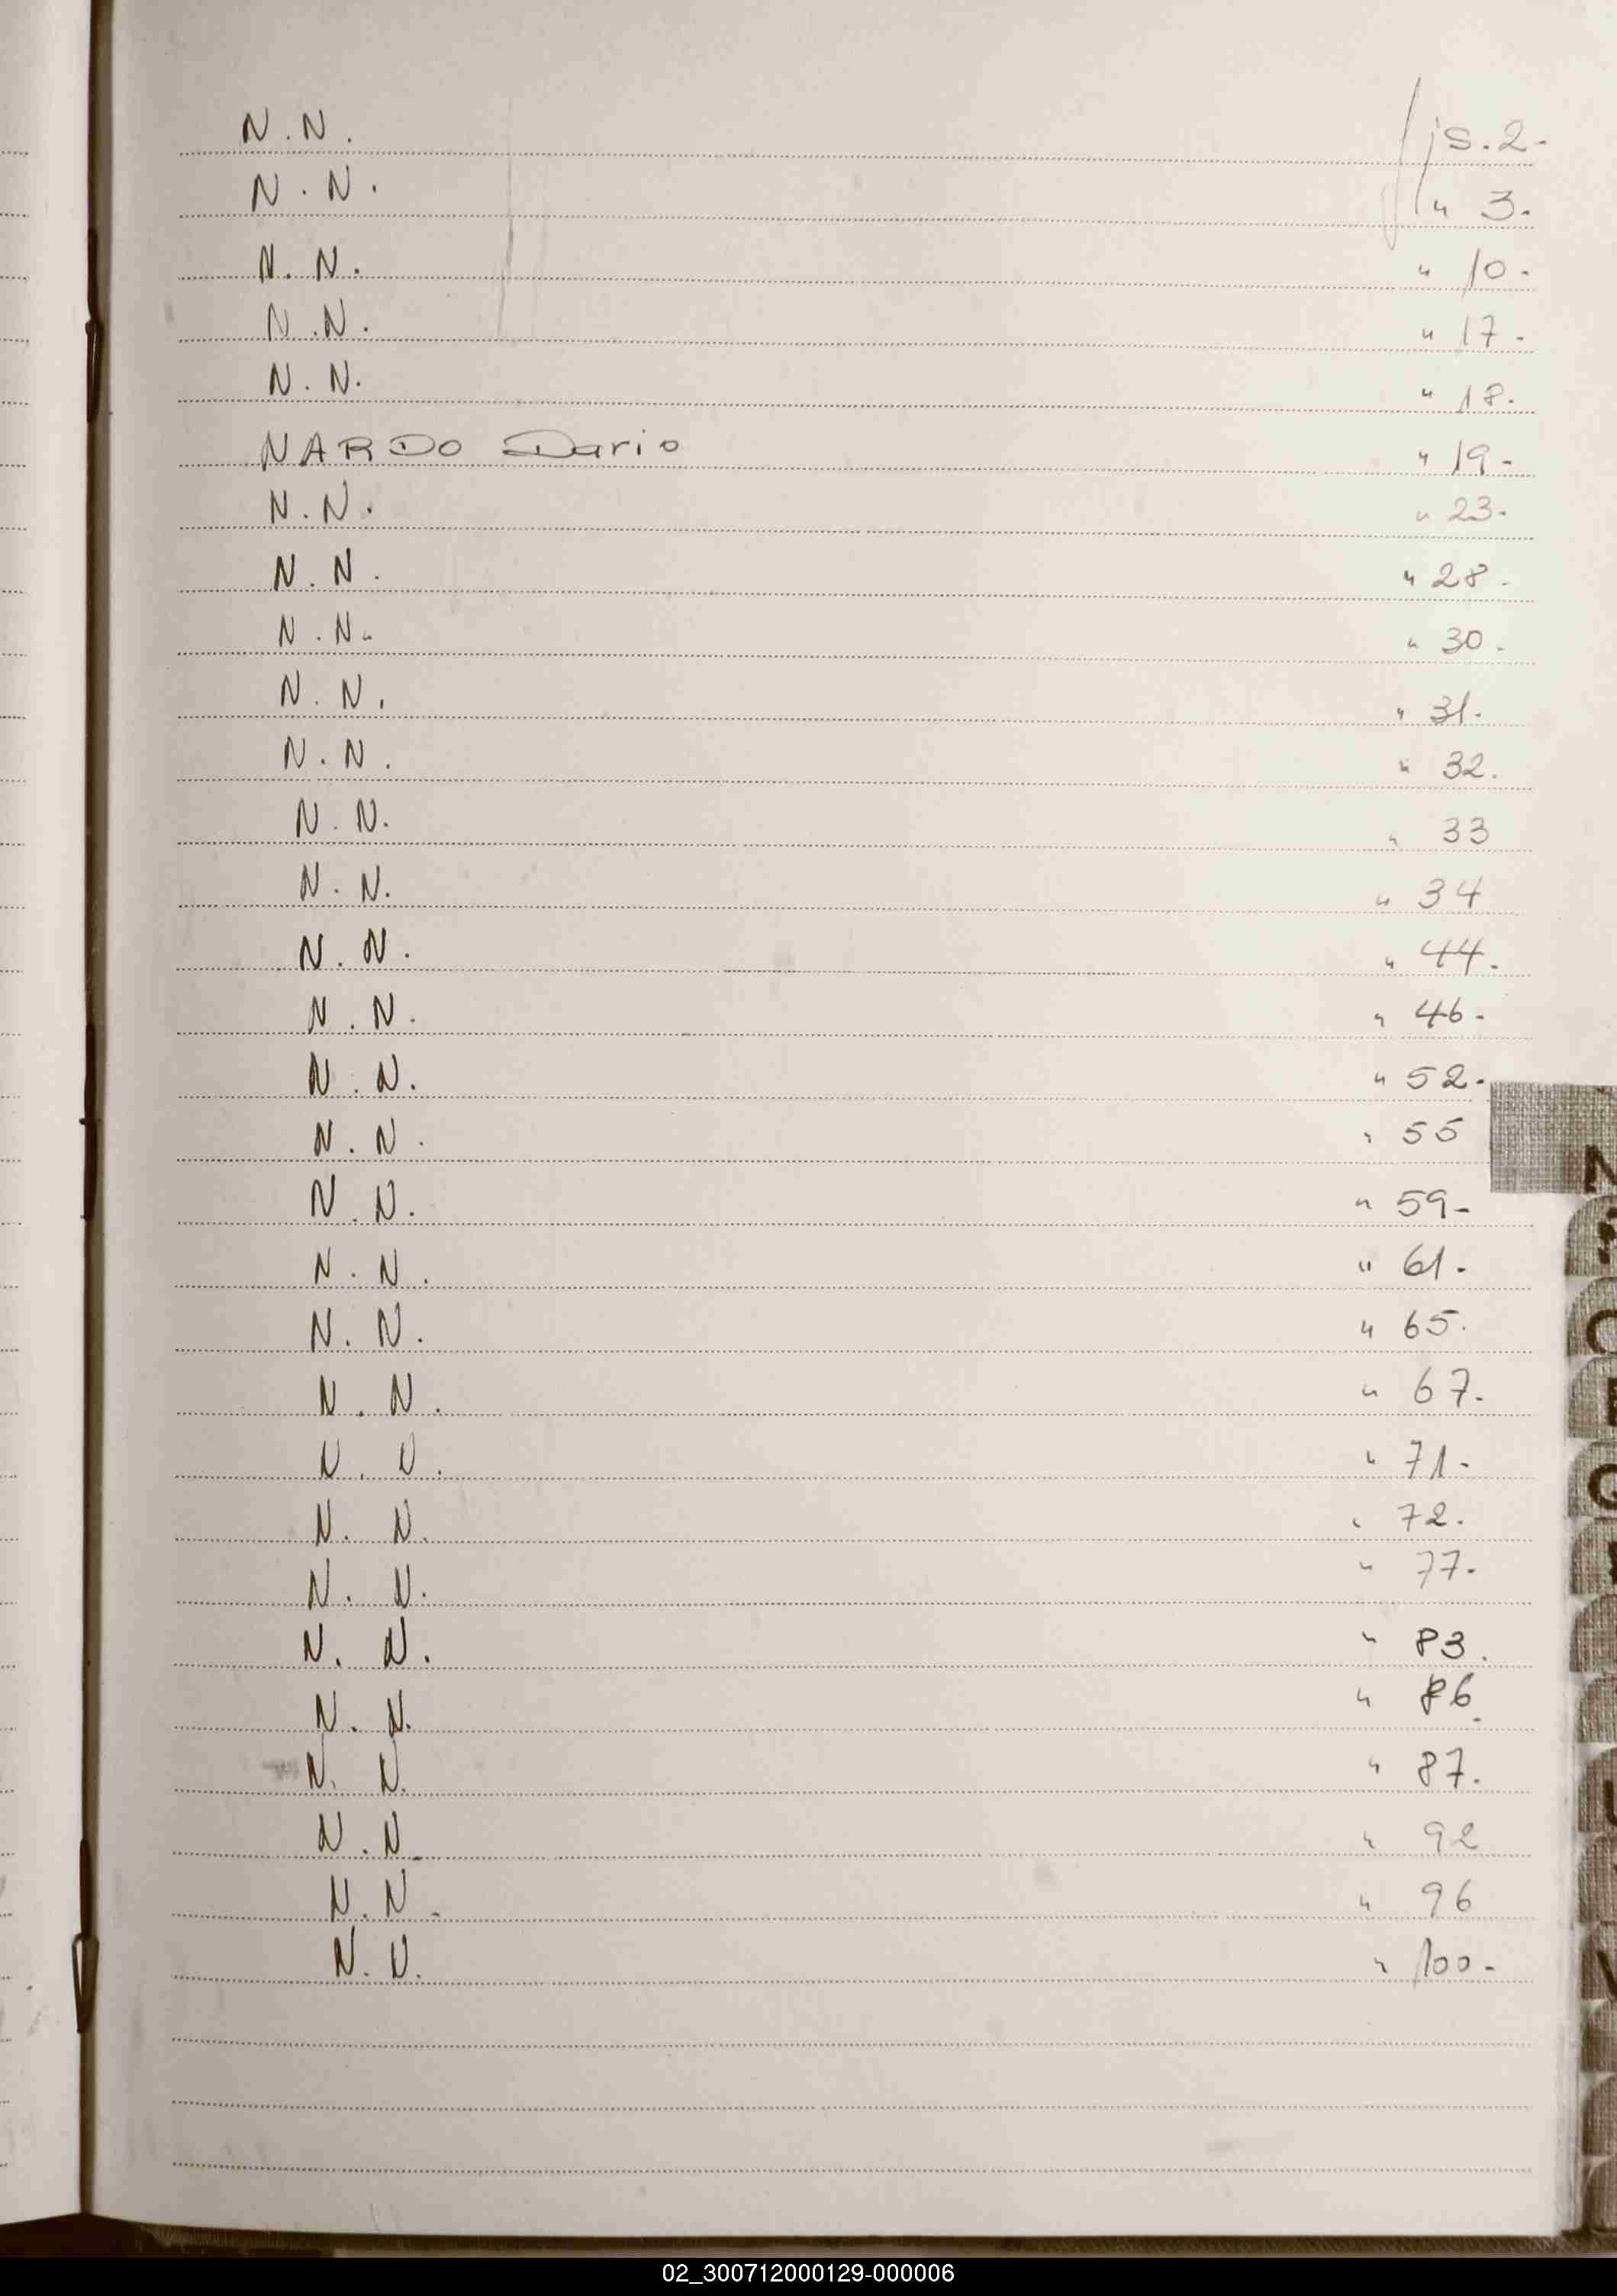 N. N. fjs. 2-
N. N. " 3.
N. N. " 10-
N. N. " 17-
N. N. " 18.
NARDO Dario " 19-
N. N. " 23-
N. N. " 28-
N. N. " 30-
N. N. " 31-
N. N. " 32.
N. N. " 33
N. N. " 34
N. N. " 44.
N. N. " 46-
N. N. " 52-
N. N. " 55
N. N. " 59-
N. N. " 61.
N. N. " 65.
N. N. " 67.
N. N. " 71-
N. N. " 72.
N. N. " 77-
N. N. " 83.
N. N. " 86.
N. N. " 87.
N. N. " 92
N. N. " 96
N. N. " 100-
N
Ñ
O
Q
02_300712000129-000006